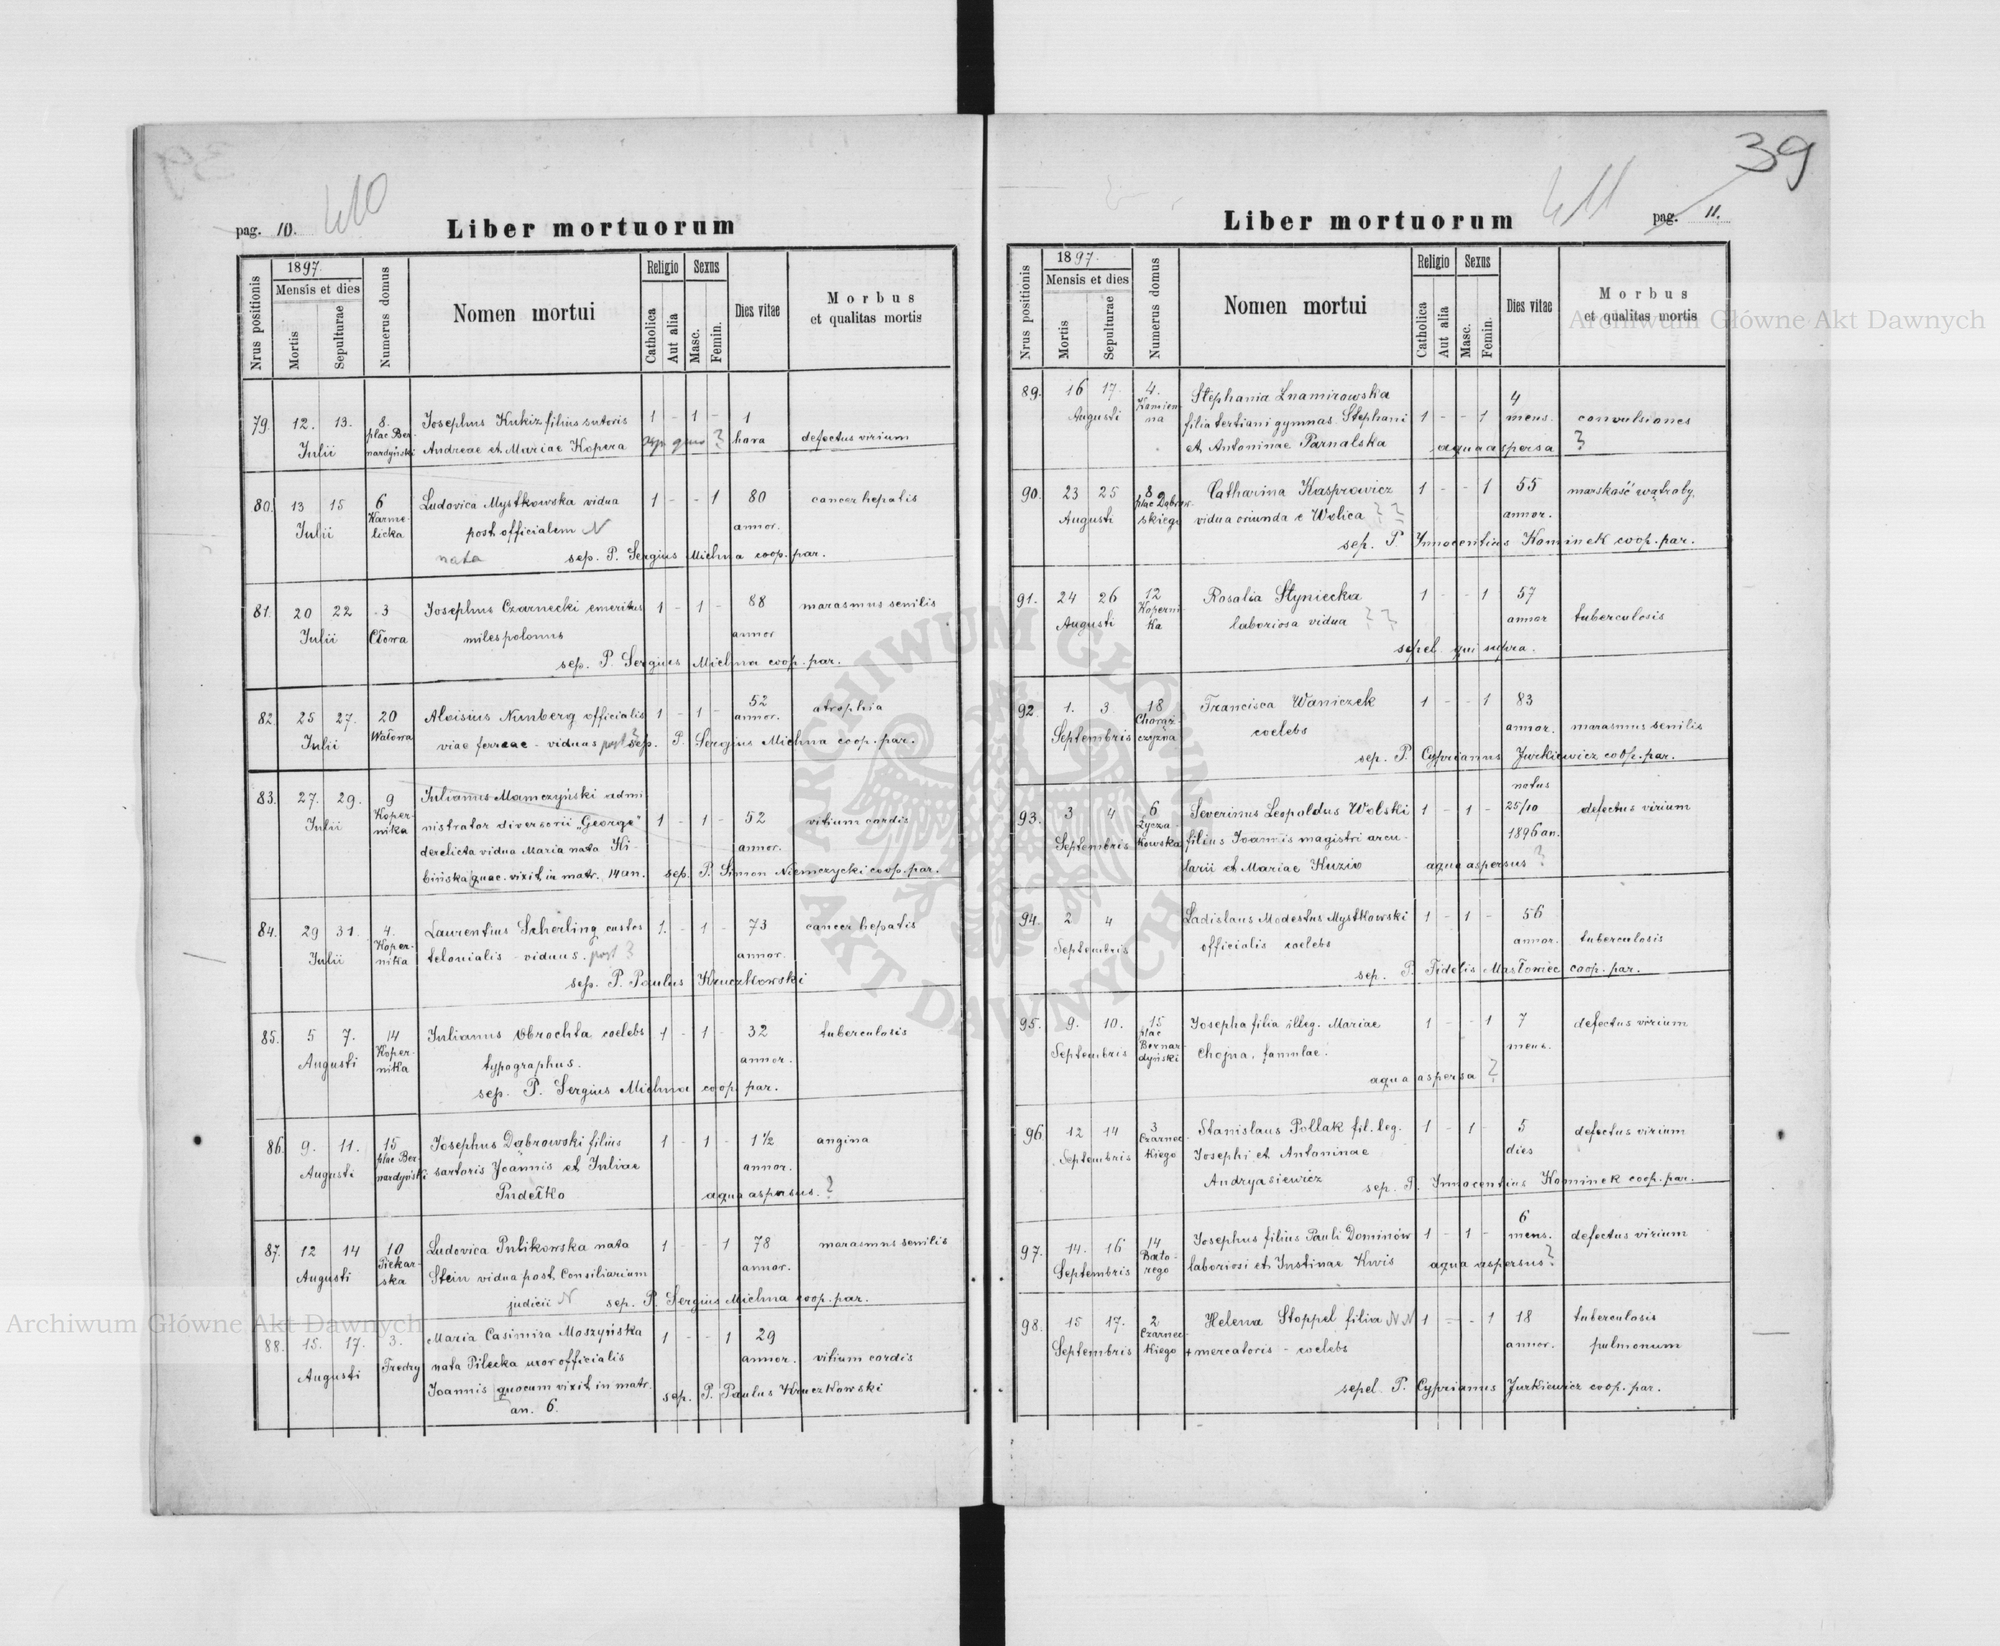 39
pag. 10.
Liber mortuorum
Nrus positionis
1897.
Mensis et dies
Mortis
Sepulturae
Numerus domus
Nomen mortui
Religio
Catholica
Aut alia
Sexus
Masc.
Femin.
Dies vitae
Morbus
et qualitas mortis
79. 12. 13. 8. Josephus Kukiz filius sutoris 1 - 1 - 1
Julii plac Ber-
nardyński Andreae et Mariae Kopera hora defectus virium
80. 13 15 6 Ludovica Mystkowska vidua 1 - - 1 80 cancer hepatis
Julii Karme-
licka post officialem N annor.
nata sep. P. Sergius Michna coop. par.
81. 20 22 3 Josephus Czarnecki emeritus 1 - 1 - 88 marasmus senilis
Julii Cłowa miles polonus annor
sep. P. Sergius Michna coop. par.
82 25 27. 20 Aloisius Nimberg officialis 1 - 1 - 52 annor. atrophia
Julii Wałowa viae ferreae - viduus post ? sep. P. Sergius Michna coop. par.
83. 27. 29. 9 Julianus Mamczyński admi
Julii Koper-
nika nistrator diversorii „George" 1 - 1 - 52 vitium cordis
derelicta vidua Maria nata Ki- annor.
bińska quac. vixit in matr. 14 an. sep. P. Simon Niemczycki coop. par.
84. 29 31. 4. Laurentius Scherling custos 1. - 1 - 73 cancer hepatis
Julii Koper-
nika telonialis - viduus. post ? annor.
sep. P. Paulus Kruczkowski
85. 5 7. 14 Julianus Obrochta coelebs 1 - 1 - 32 tuberculosis
Augusti Koper-
nika typographus. annor.
sep. P. Sergius Michna coop. par.
86. 9. 11. 15 Josephus Dąbrowski filius 1 - 1 - 1½ angina
Augusti plac Ber-
nardyński sartoris Joannis et Juliae annor.
Pudełko aqua aspersus. ?
87. 12 14 10 Ludovica Pulikowska nata 1 - - 1 78 marasmus senilis
Augusti Piekar-
ska Stein vidua post Consiliarium annor.
judicii N sep. P. Sergius Michna coop. par.
88. 15. 17. 3. Maria Casimira Moszyńska 1 - - 1 29
Augusti Fredry nata Pilecka uxor officialis annor. vitium cordis
Joannis quocum vixit in matr. sep. P. Paulus Kruczkowski
an. 6.
Liber mortuorum
pag. 11.
Nrus positionis
1897.
Mensis et dies
Mortis
Sepulturae
Numerus domus
Nomen mortui
Religio
Catholica
Aut alia
Sexus
Masc.
Femin.
Dies vitae
Morbus
et qualitas mortis
89. 16 17. 4. Stephania Znamirowska 4
Augusti Kamien-
na filia tertiani gymnas. Stephani 1 - - 1 mens. convulsiones
et Antoninae Parnalska aqua aspersa ?
90. 23 25 8 Catharina Kasprowicz 1 - - 1 55 marskość wątroby.
Augusti plac Dąbrow-
skiego vidua oriunda e Wolica ? ? annor.
sep. P. Innocentius Kominek coop. par.
91. 24 26 12 Rosalia Styniecka 1 - - 1 57
Augusti Koperni-
ka laboriosa vidua ? ? annor tuberculosis
sepel. qui supra.
92. 1. 3 18 Francisca Waniczek 1 - - 1 83
Septembris Chorąż-
czyzna coelebs annor. marasmus senilis
sep. P. Cyprianus Jurkiewicz coop. par.
natus
93. 3 4 6 Severinus Leopoldus Wolski 1 - 1 - 25/10 defectus virium
Septembris Łycza-
kowska filius Joannis magistri arcu- 1896 an.
larii et Mariae Kuzio aqua aspersus ?
94. 2 4 Ladislaus Modestus Mystkowski 1 - 1 - 56
Septembris officialis coelebs annor. tuberculosis
sep. P. Fidelis Masłowiec coop. par.
95. 9. 10. 15 Josepha filia illeg. Mariae 1 - - 1 7 defectus virium
Septembris plac
Bernar-
dyński Chojna, famulae. mens.
aqua aspersa ?
96. 12 14 3 Stanislaus Pollak fil. leg. 1 - 1 - 5 defectus virium
Septembris Czarnec-
kiego Josephi et Antoninae dies
Andryasiewicz sep. P. Innocentius Kominek coop. par.
97. 14. 16 14 Josephus filius Pauli Dominów 1 - 1 - 6 mens. defectus virium
Septembris Bato-
rego laboriosi et Justinae Kwis aqua aspersus ?
98. 15 17. 2 Helena Stoppel filia N N 1 - - 1 18 tuberculosis
Septembris Czarnec-
kiego + mercatoris - coelebs annor. pulmonum
sepel. P. Cyprianus Jurkiewicz coop. par.
Archiwum Główne Akt Dawnych
Archiwum Główne Akt Dawnych
ARCHIWUM GŁÓWNE AKT DAWNYCH